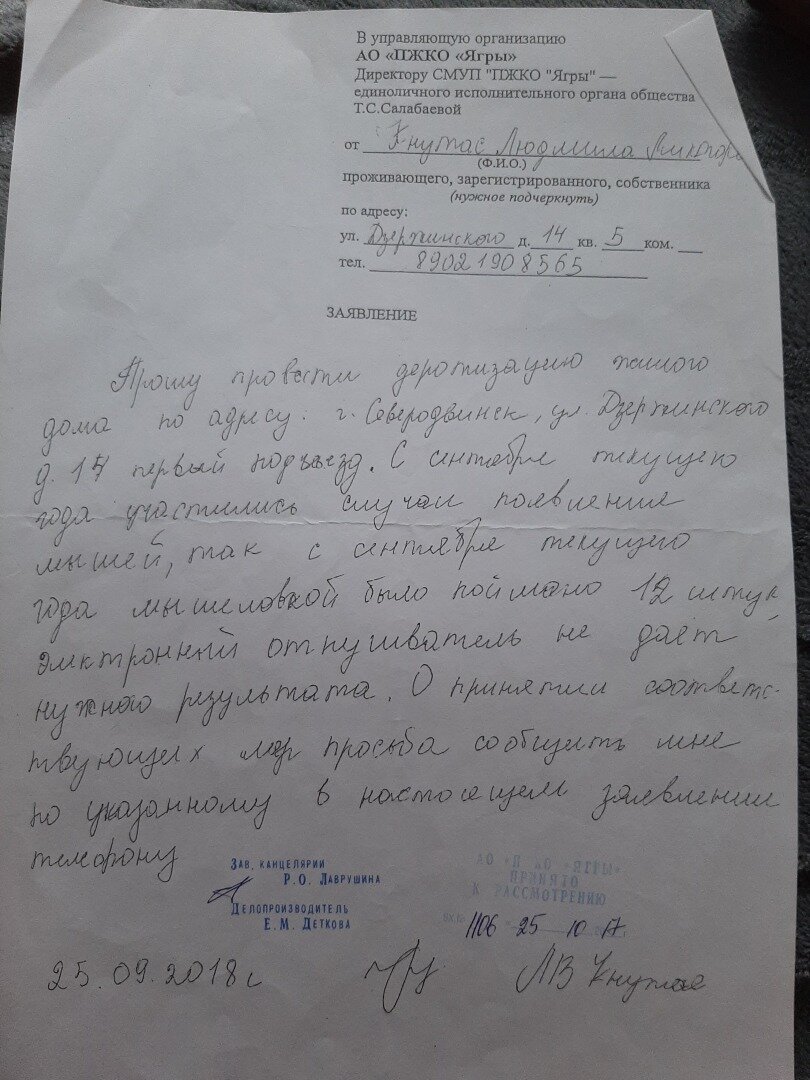 В управляющую организацию
АО «ПЖКО «Ягры»
Директору СМУП "ПЖКО "Ягры" —
единоличного исполнительного органа общества
Т.С.Салабаевой
от Кнутас Людмила Виктор
(Ф.И.О.)
проживающего, зарегистрированного, собственника
(нужное подчеркнуть)
по адресу:
ул. Дзержинского д. 14 кв. 5 ком.
тел. 89021908565
ЗАЯВЛЕНИЕ
Прошу провести деротизацию жилого
дома по адресу: г. Северодвинск, ул. Дзержинского
д. 14 первый подъезд. С сентября текущего
года участились случаи появления
мышей, так с сентября текущего
года мышеловкой было поймано 12 штук,
электронный отпугиватель не даёт
нужного результата. О принятии соответс-
твующих мер просьба сообщить мне
по указанному в настоящем заявлении
телефону
ЗАВ. КАНЦЕЛЯРИИ
Р.О. ЛАВРУШИНА
ДЕЛОПРОИЗВОДИТЕЛЬ
Е.М. ДЕТКОВА
АО «П ЖКО «ЯГРЫ»
ПРИНЯТО
К РАССМОТРЕНИЮ
ВХ.№ 1106 25 10 17
25.09.2018 г ЛВ Кнутас